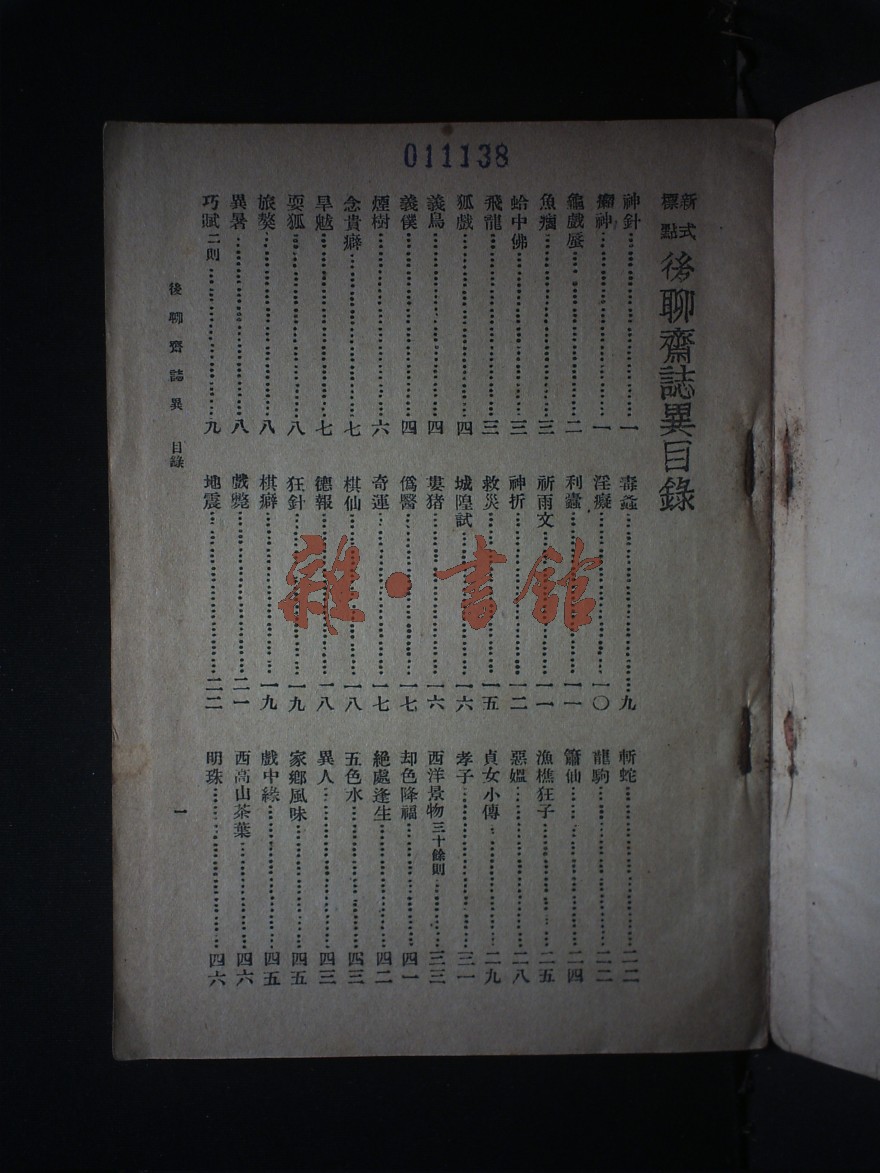 011138
新式標點 後聊齋誌異目錄
神針……一
龜戲蜃……二
魚癟……三
蛤中佛……三
飛龍……三
狐戲……四
義鳥……四
義僕……四
煙樹……六
念貴癖……七
旱魃……七
耍狐……八
旅獒……八
異暑……八
巧賦二則……九
毒蠡……九
淫癡……一〇
利蠹……一一
祈雨文……一一
神折……一二
救災……一五
城隍試……一六
婁猪……一六
僞醫……一七
奇運……一七
棋仙……一八
德報……一八
狂針……一九
棋癖……一九
戲斃……二一
地震……二二
斬蛇……二二
龍駒……二二
簫仙……二四
漁樵狂子……二五
惡媼……二八
貞女小傳……二九
孝子……三一
西洋景物三十餘則……三三
却色降福……四一
絕處逢生……四二
五色水……四三
異人……四三
家鄉風味……四五
戲中緣……四五
西高山茶葉……四六
明珠……四六
後聊齋誌異 目錄 一
雜·書館